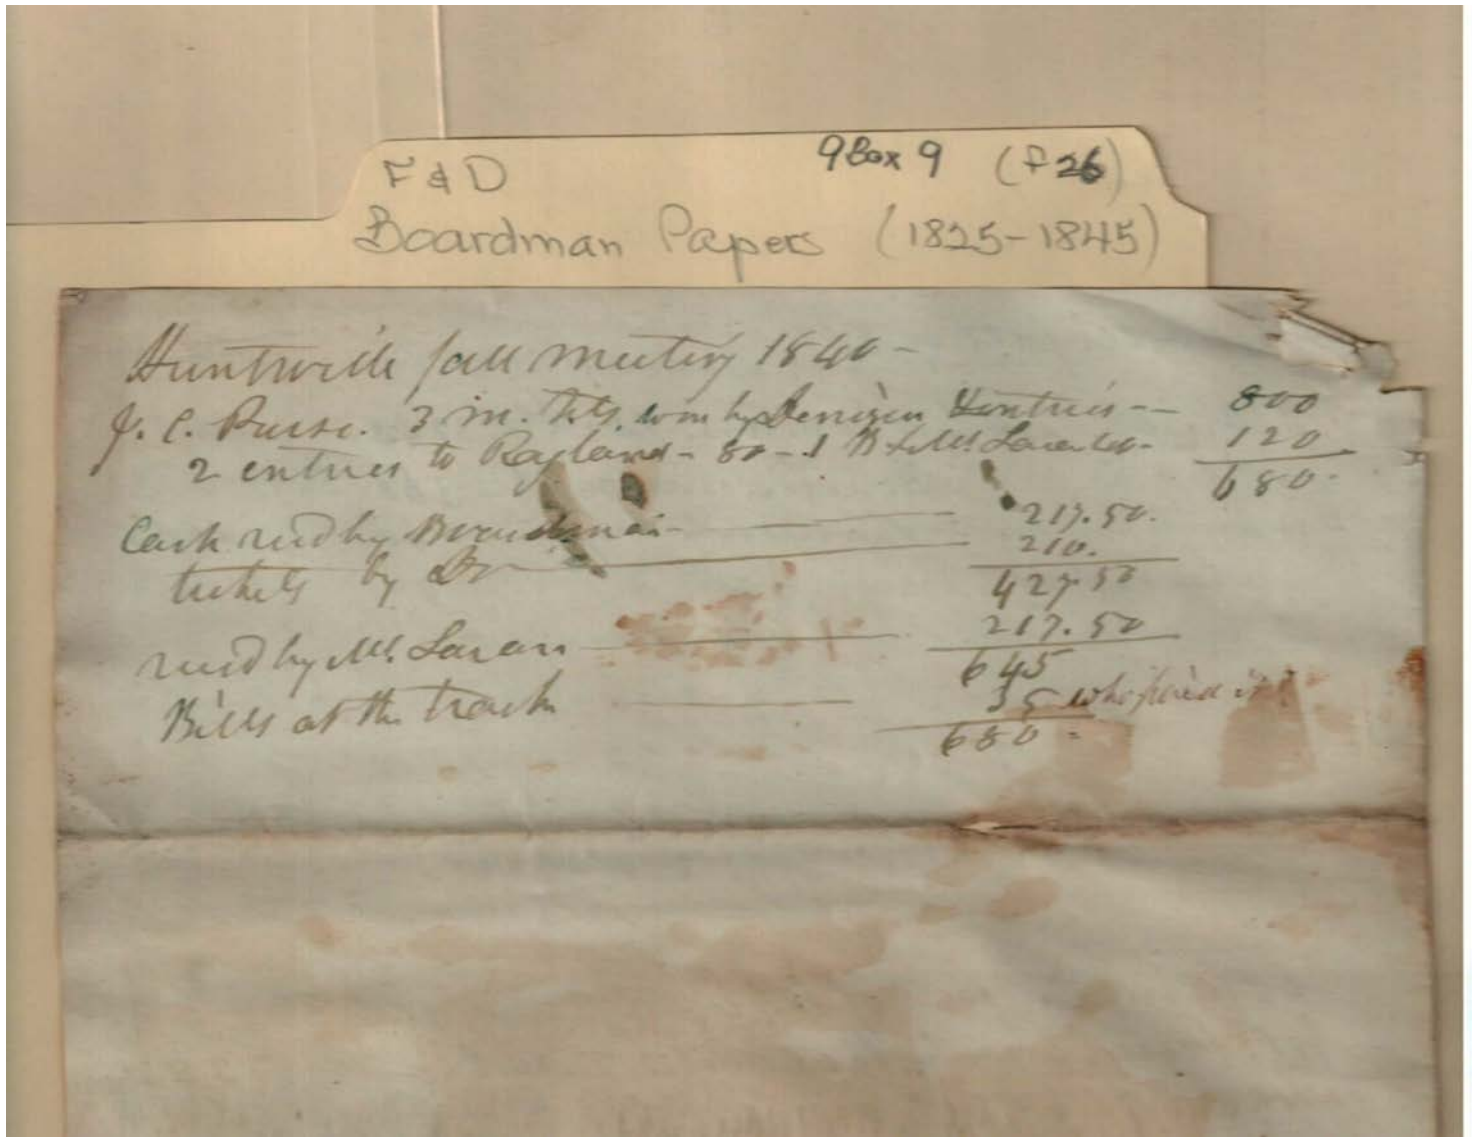 F & D 9 Box 9 (f 26)
Boardman Papers (1825-1845)
Huntsville fall meeting 1840 -
J. C. Purse. 3 m. hts. won by 3 entries -- 800
2 entries to Ragland - 80 - 1 McLaran 40 - 120
680 -
Cash recd by Boardman - 217.50.
tickets by Do 210.
427.50
recd by McLaran 217.50
645
Bills at the track 35 who paid it?
680 =